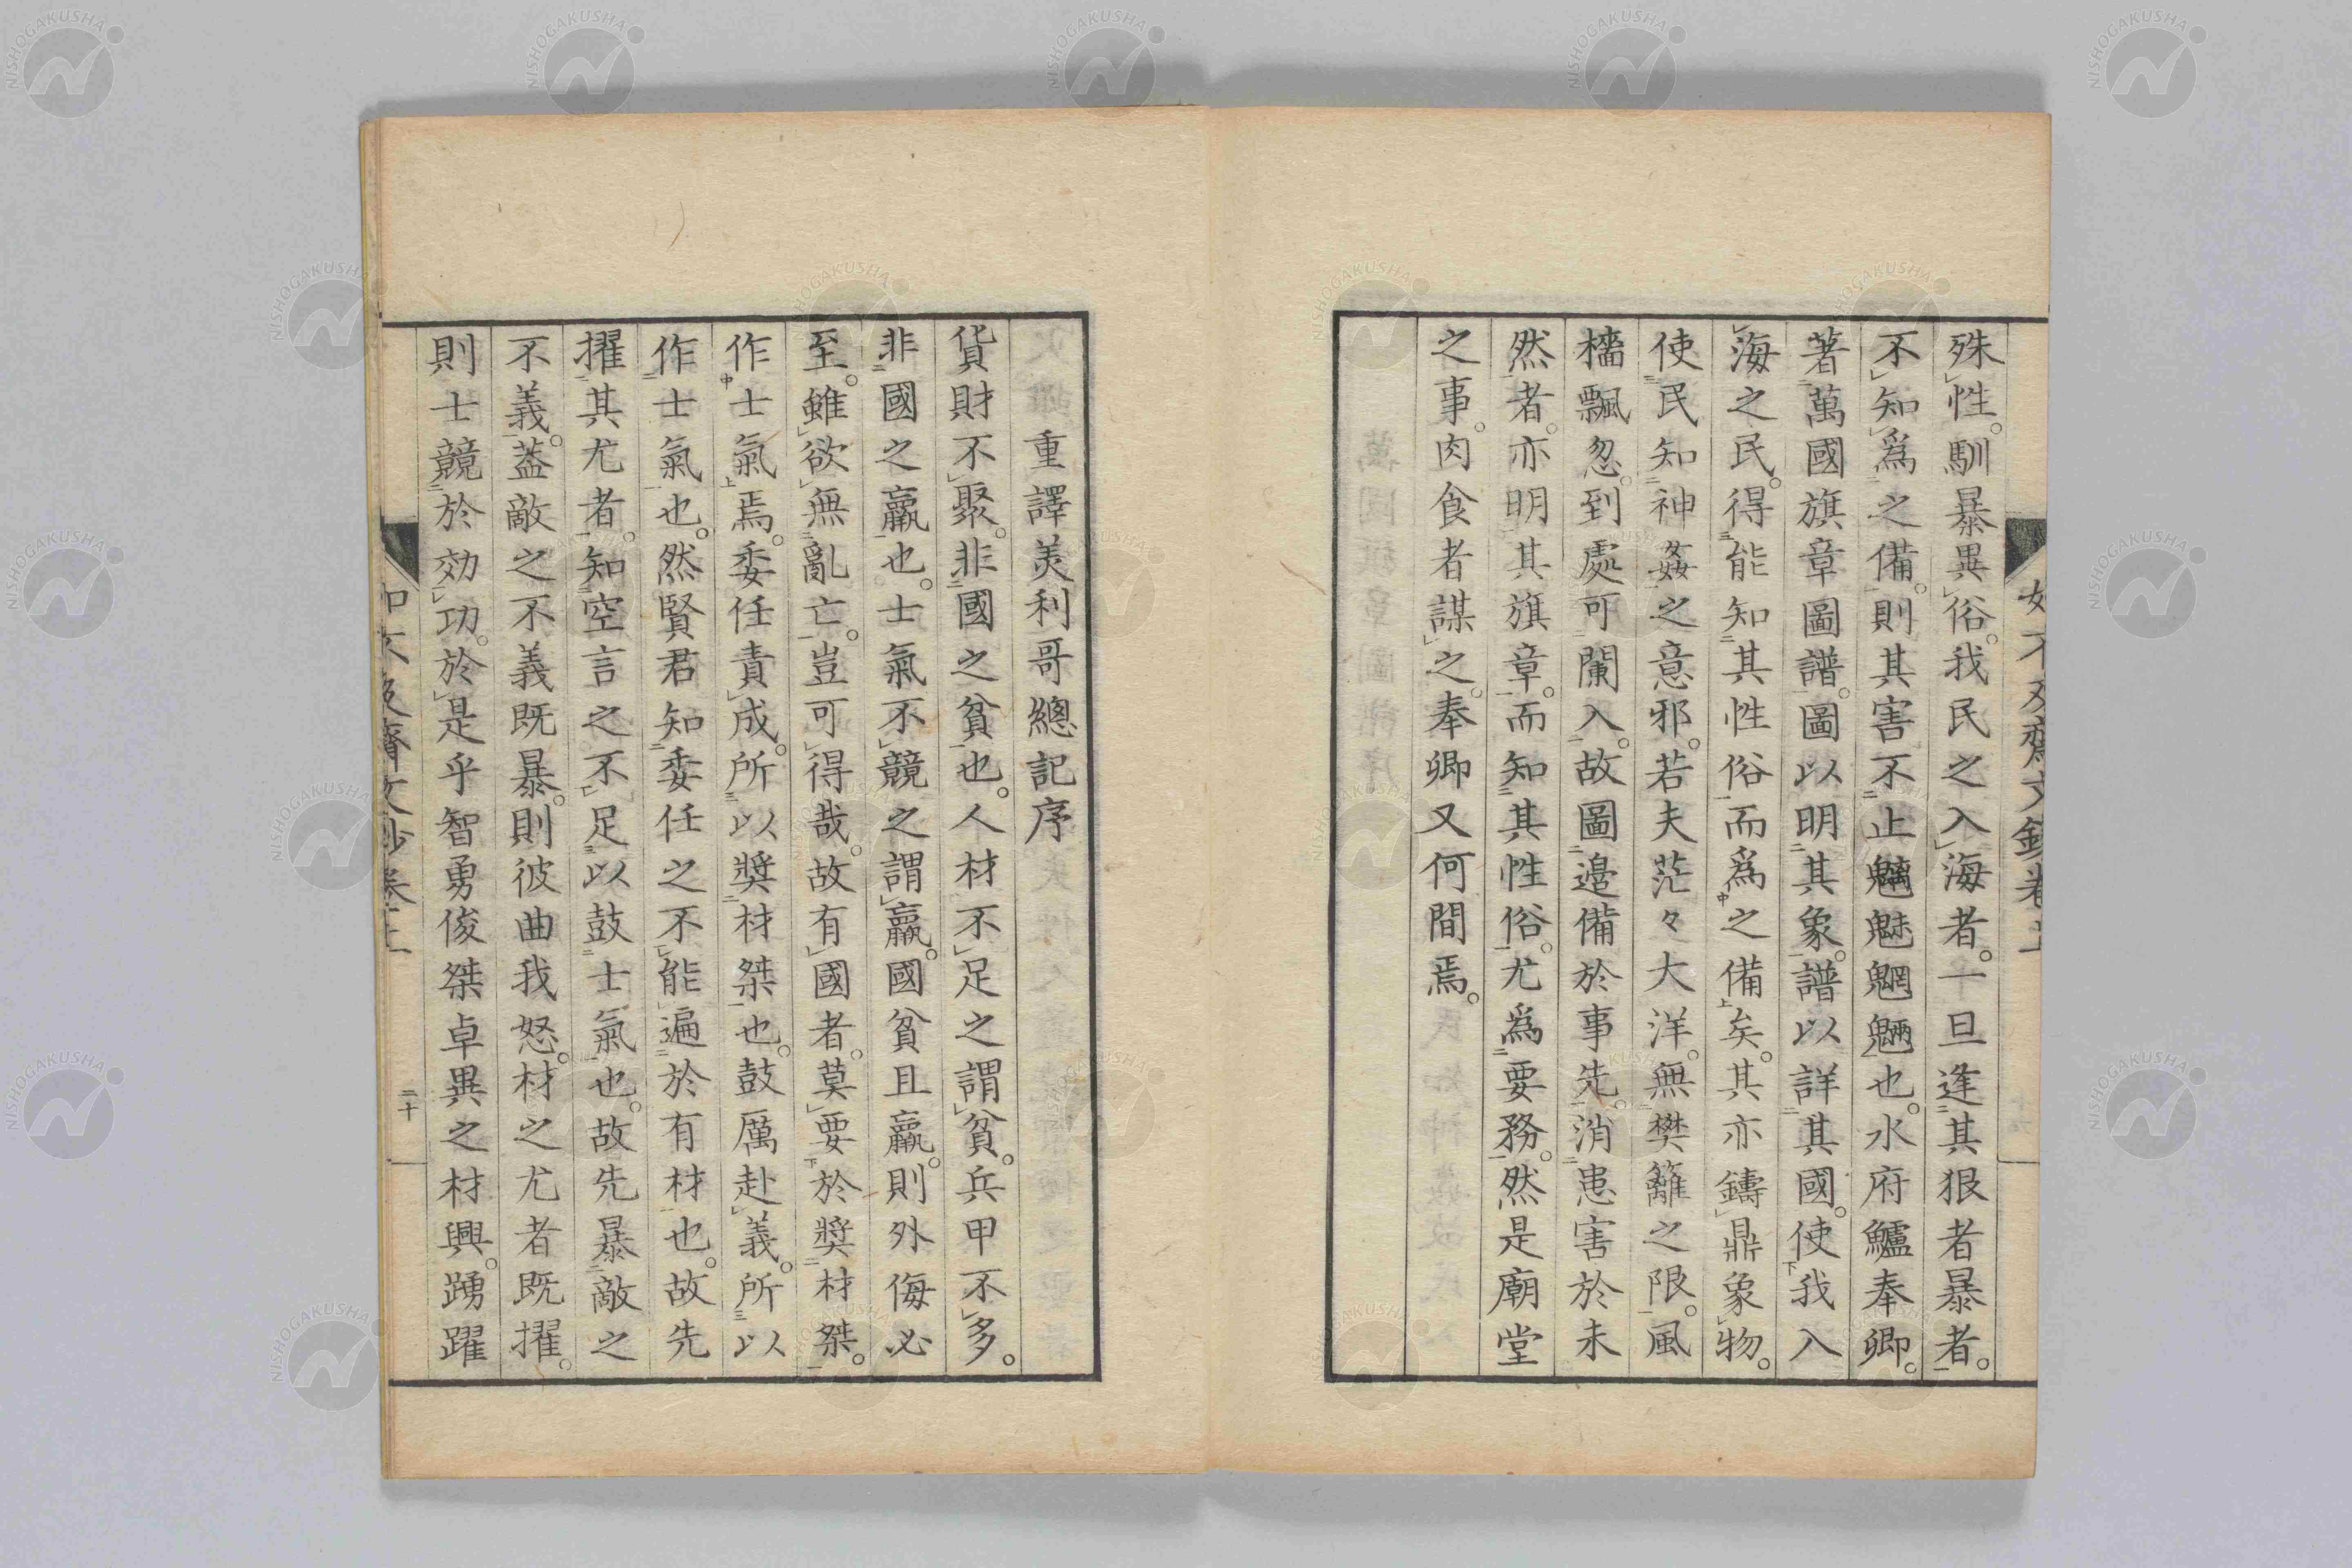 如不及齋文鈔卷上
殊性。馴暴異俗。我民之入海者。一旦逢其狠者暴者。
不知爲之備。則其害不止魑魅魍魎也。水府鱸奉卿。
著萬國旗章圖譜。圖以明其象。譜以詳其國。使我入
海之民。得能知其性俗而爲之備矣。其亦鑄鼎象物。
使民知神姦之意邪。若夫茫々大洋。無樊籬之限。風
檣飄忽。到處可闌入。故圖邊備於事先。消患害於未
然者。亦明其旗章。而知其性俗。尤爲要務。然是廟堂
之事。肉食者謀之。奉卿又何間焉。
重譯美利哥總記序
貨財不聚。非國之貧也。人材不足之謂貧。兵甲不多。
非國之羸也。士氣不競之謂羸。國貧且羸。則外侮必
至。雖欲無亂亡。豈可得哉。故有國者。莫要於奬材桀。
作士氣焉。委任責成。所以奬材桀也。鼓厲赴義。所以
作士氣也。然賢君知委任之不能遍於有材也。故先
擢其尤者。知空言之不足以鼓士氣也。故先暴敵之
不義。葢敵之不義既暴。則彼曲我怒。材之尤者既擢。
則士競於効功。於是乎智勇俊桀卓異之材興。踴躍
如不及齋文鈔卷上
二十
NISHOGAKUSHA